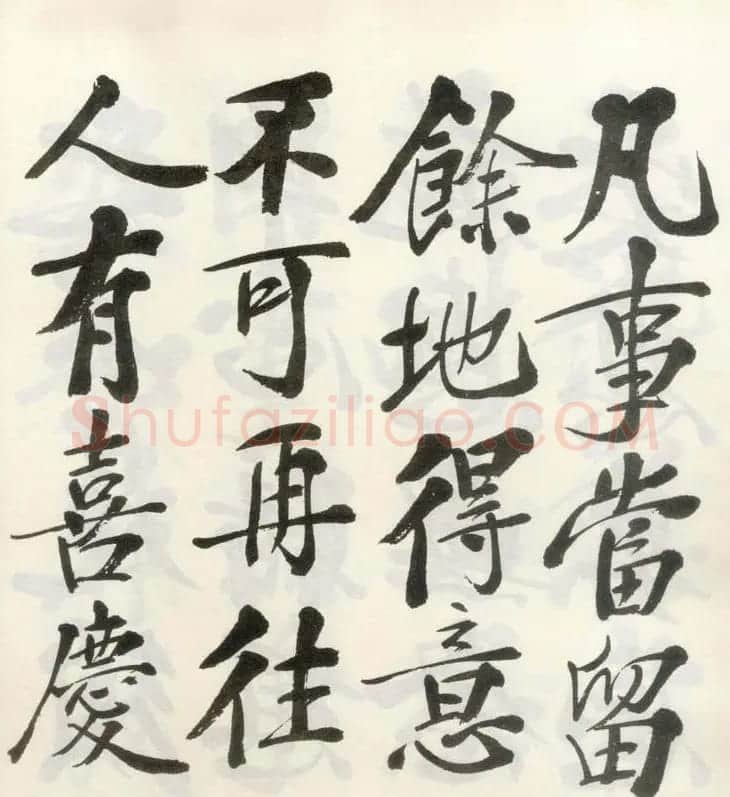 凡事當留
餘地得意
不可再往
人有喜慶
Shufaziliao.COM